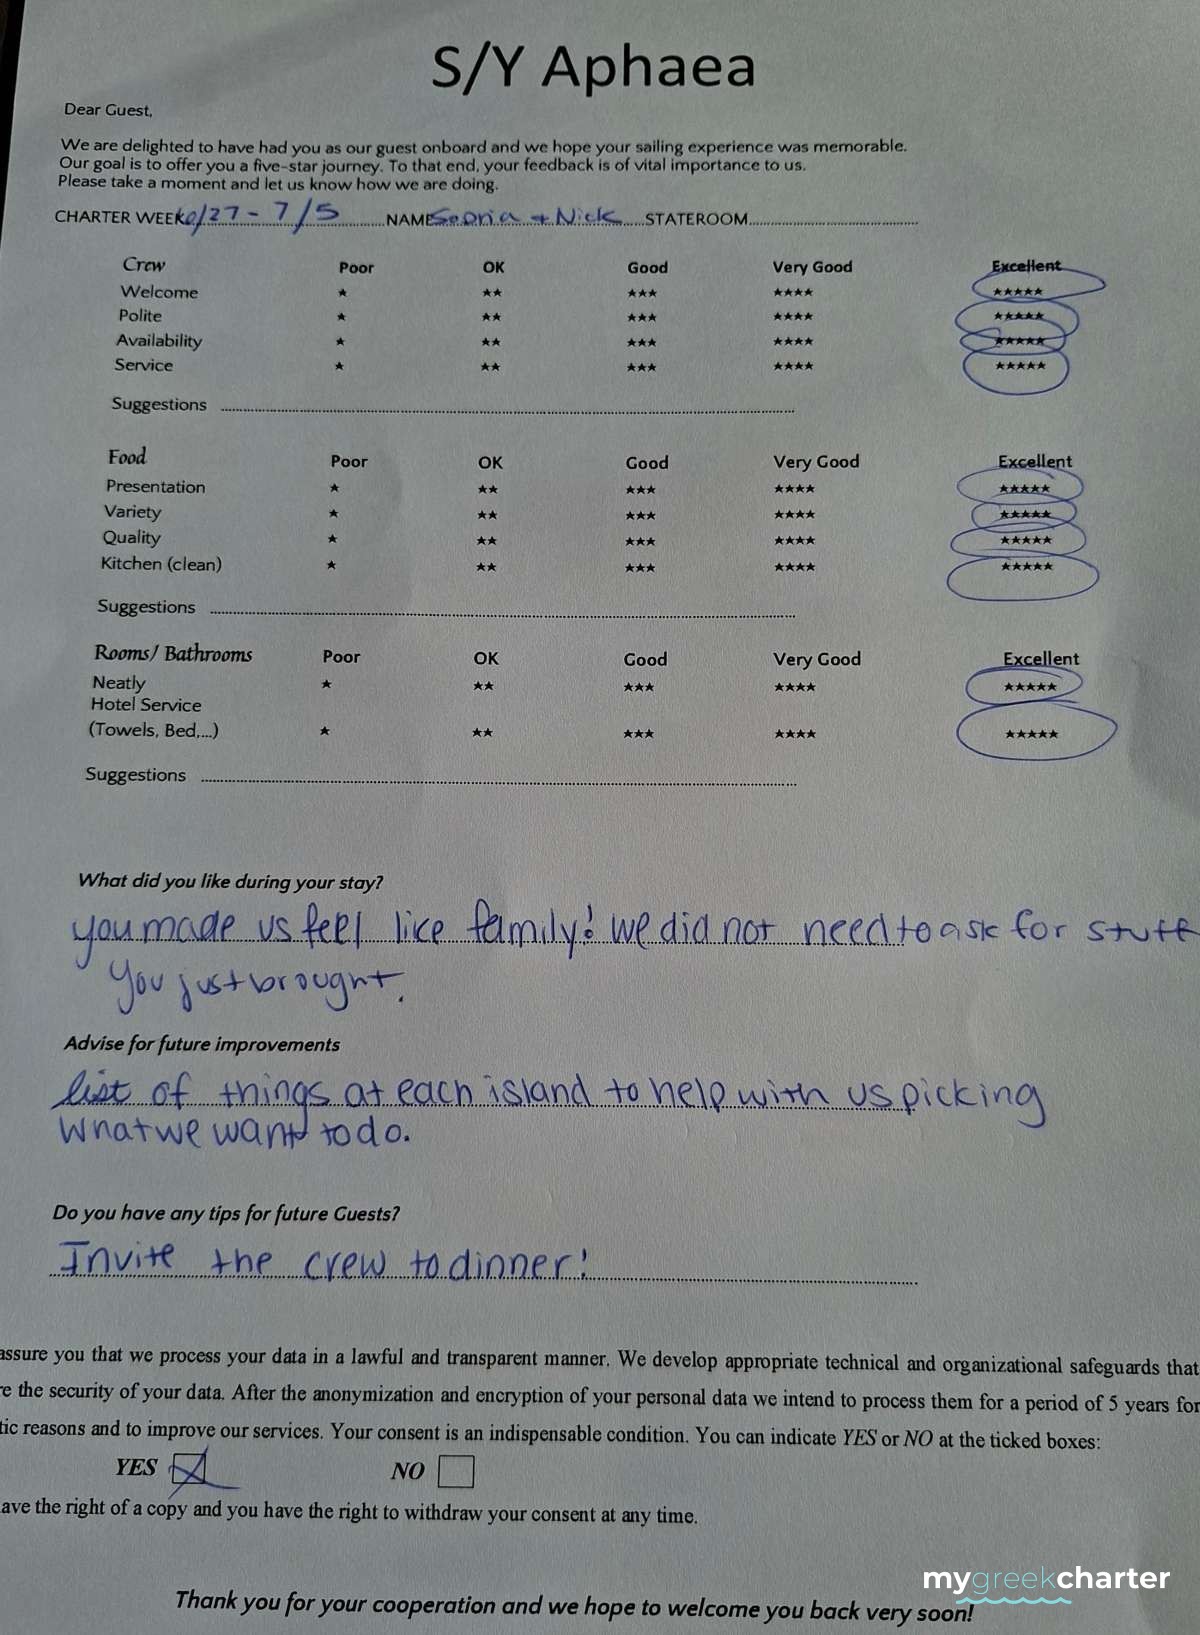 S/Y Aphaea
Dear Guest,
We are delighted to have had you as our guest onboard and we hope your sailing experience was memorable.
Our goal is to offer you a five-star journey. To that end, your feedback is of vital importance to us.
Please take a moment and let us know how we are doing.
CHARTER WEEK 6/27 - 7/5 NAME + Nick STATEROOM
Crew Poor OK Good Very Good Excellent
Welcome ★ ★★ ★★★ ★★★★ ★★★★★
Polite ★ ★★ ★★★ ★★★★ ★★★★★
Availability ★ ★★ ★★★ ★★★★ ★★★★★
Service ★ ★★ ★★★ ★★★★ ★★★★★
Suggestions
Food Poor OK Good Very Good Excellent
Presentation ★ ★★ ★★★ ★★★★ ★★★★★
Variety ★ ★★ ★★★ ★★★★ ★★★★★
Quality ★ ★★ ★★★ ★★★★ ★★★★★
Kitchen (clean) ★ ★★ ★★★ ★★★★ ★★★★★
Suggestions
Rooms/ Bathrooms Poor OK Good Very Good Excellent
Neatly ★ ★★ ★★★ ★★★★ ★★★★★
Hotel Service
(Towels, Bed,...) ★ ★★ ★★★ ★★★★ ★★★★★
Suggestions
What did you like during your stay?
you made us feel like family! We did not need to ask for stuff
You just brought.
Advise for future improvements
list of things at each island to help with us picking
what we want to do.
Do you have any tips for future Guests?
Invite the crew to dinner!
assure you that we process your data in a lawful and transparent manner. We develop appropriate technical and organizational safeguards that
re the security of your data. After the anonymization and encryption of your personal data we intend to process them for a period of 5 years for
tic reasons and to improve our services. Your consent is an indispensable condition. You can indicate YES or NO at the ticked boxes:
YES NO
ave the right of a copy and you have the right to withdraw your consent at any time.
mygreekcharter
Thank you for your cooperation and we hope to welcome you back very soon!